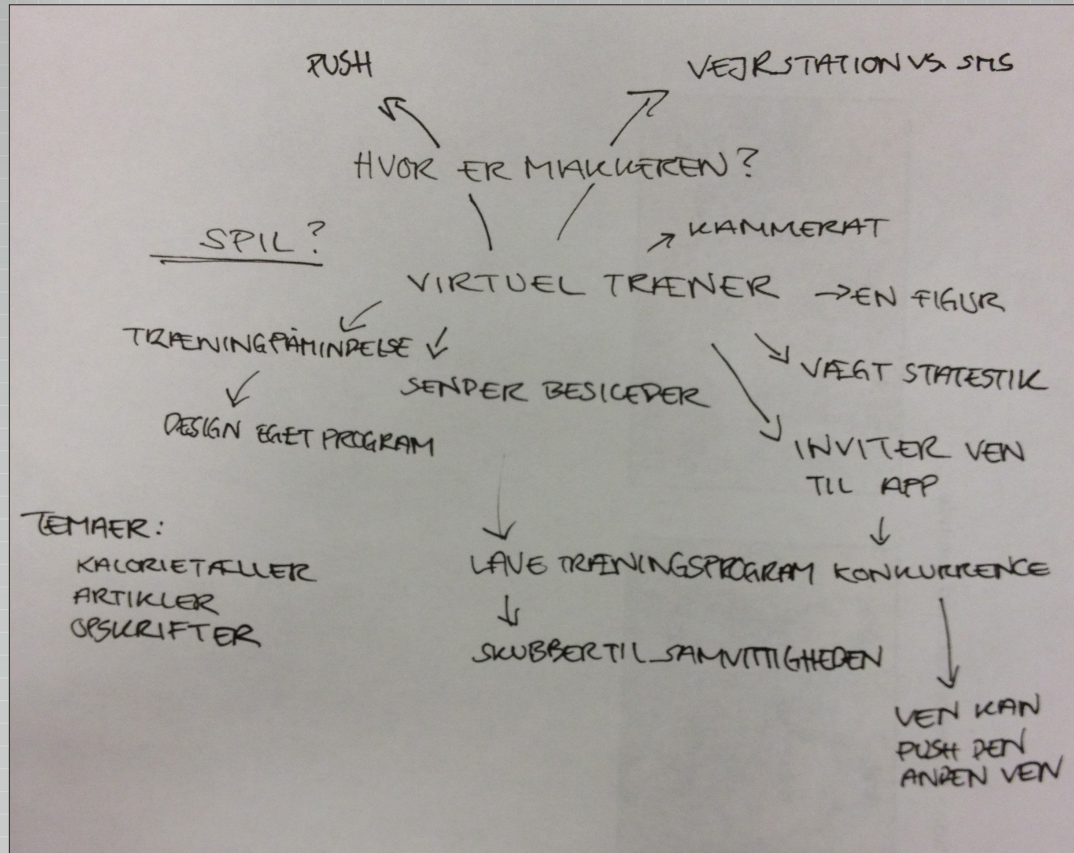 PUSH
VEJRSTATION VS. SMS
HVOR ER MAKKEREN?
SPIL?
KAMMERAT
VIRTUEL TRÆNER
EN FIGUR
TRÆNINGPÅMINDELSE
VÆGT STATESTIK
SENDER BESKEDER
DESIGN EGET PROGRAM
INVITER VEN
TIL APP
TEMAER:
KALORIETÆLLER
ARTIKLER
OPSKRIFTER
LAVE TRÆNINGSPROGRAM
KONKURRENCE
SKUBBER TIL SAMVITTIGHEDEN
VEN KAN
PUSH DEN
ANDEN VEN